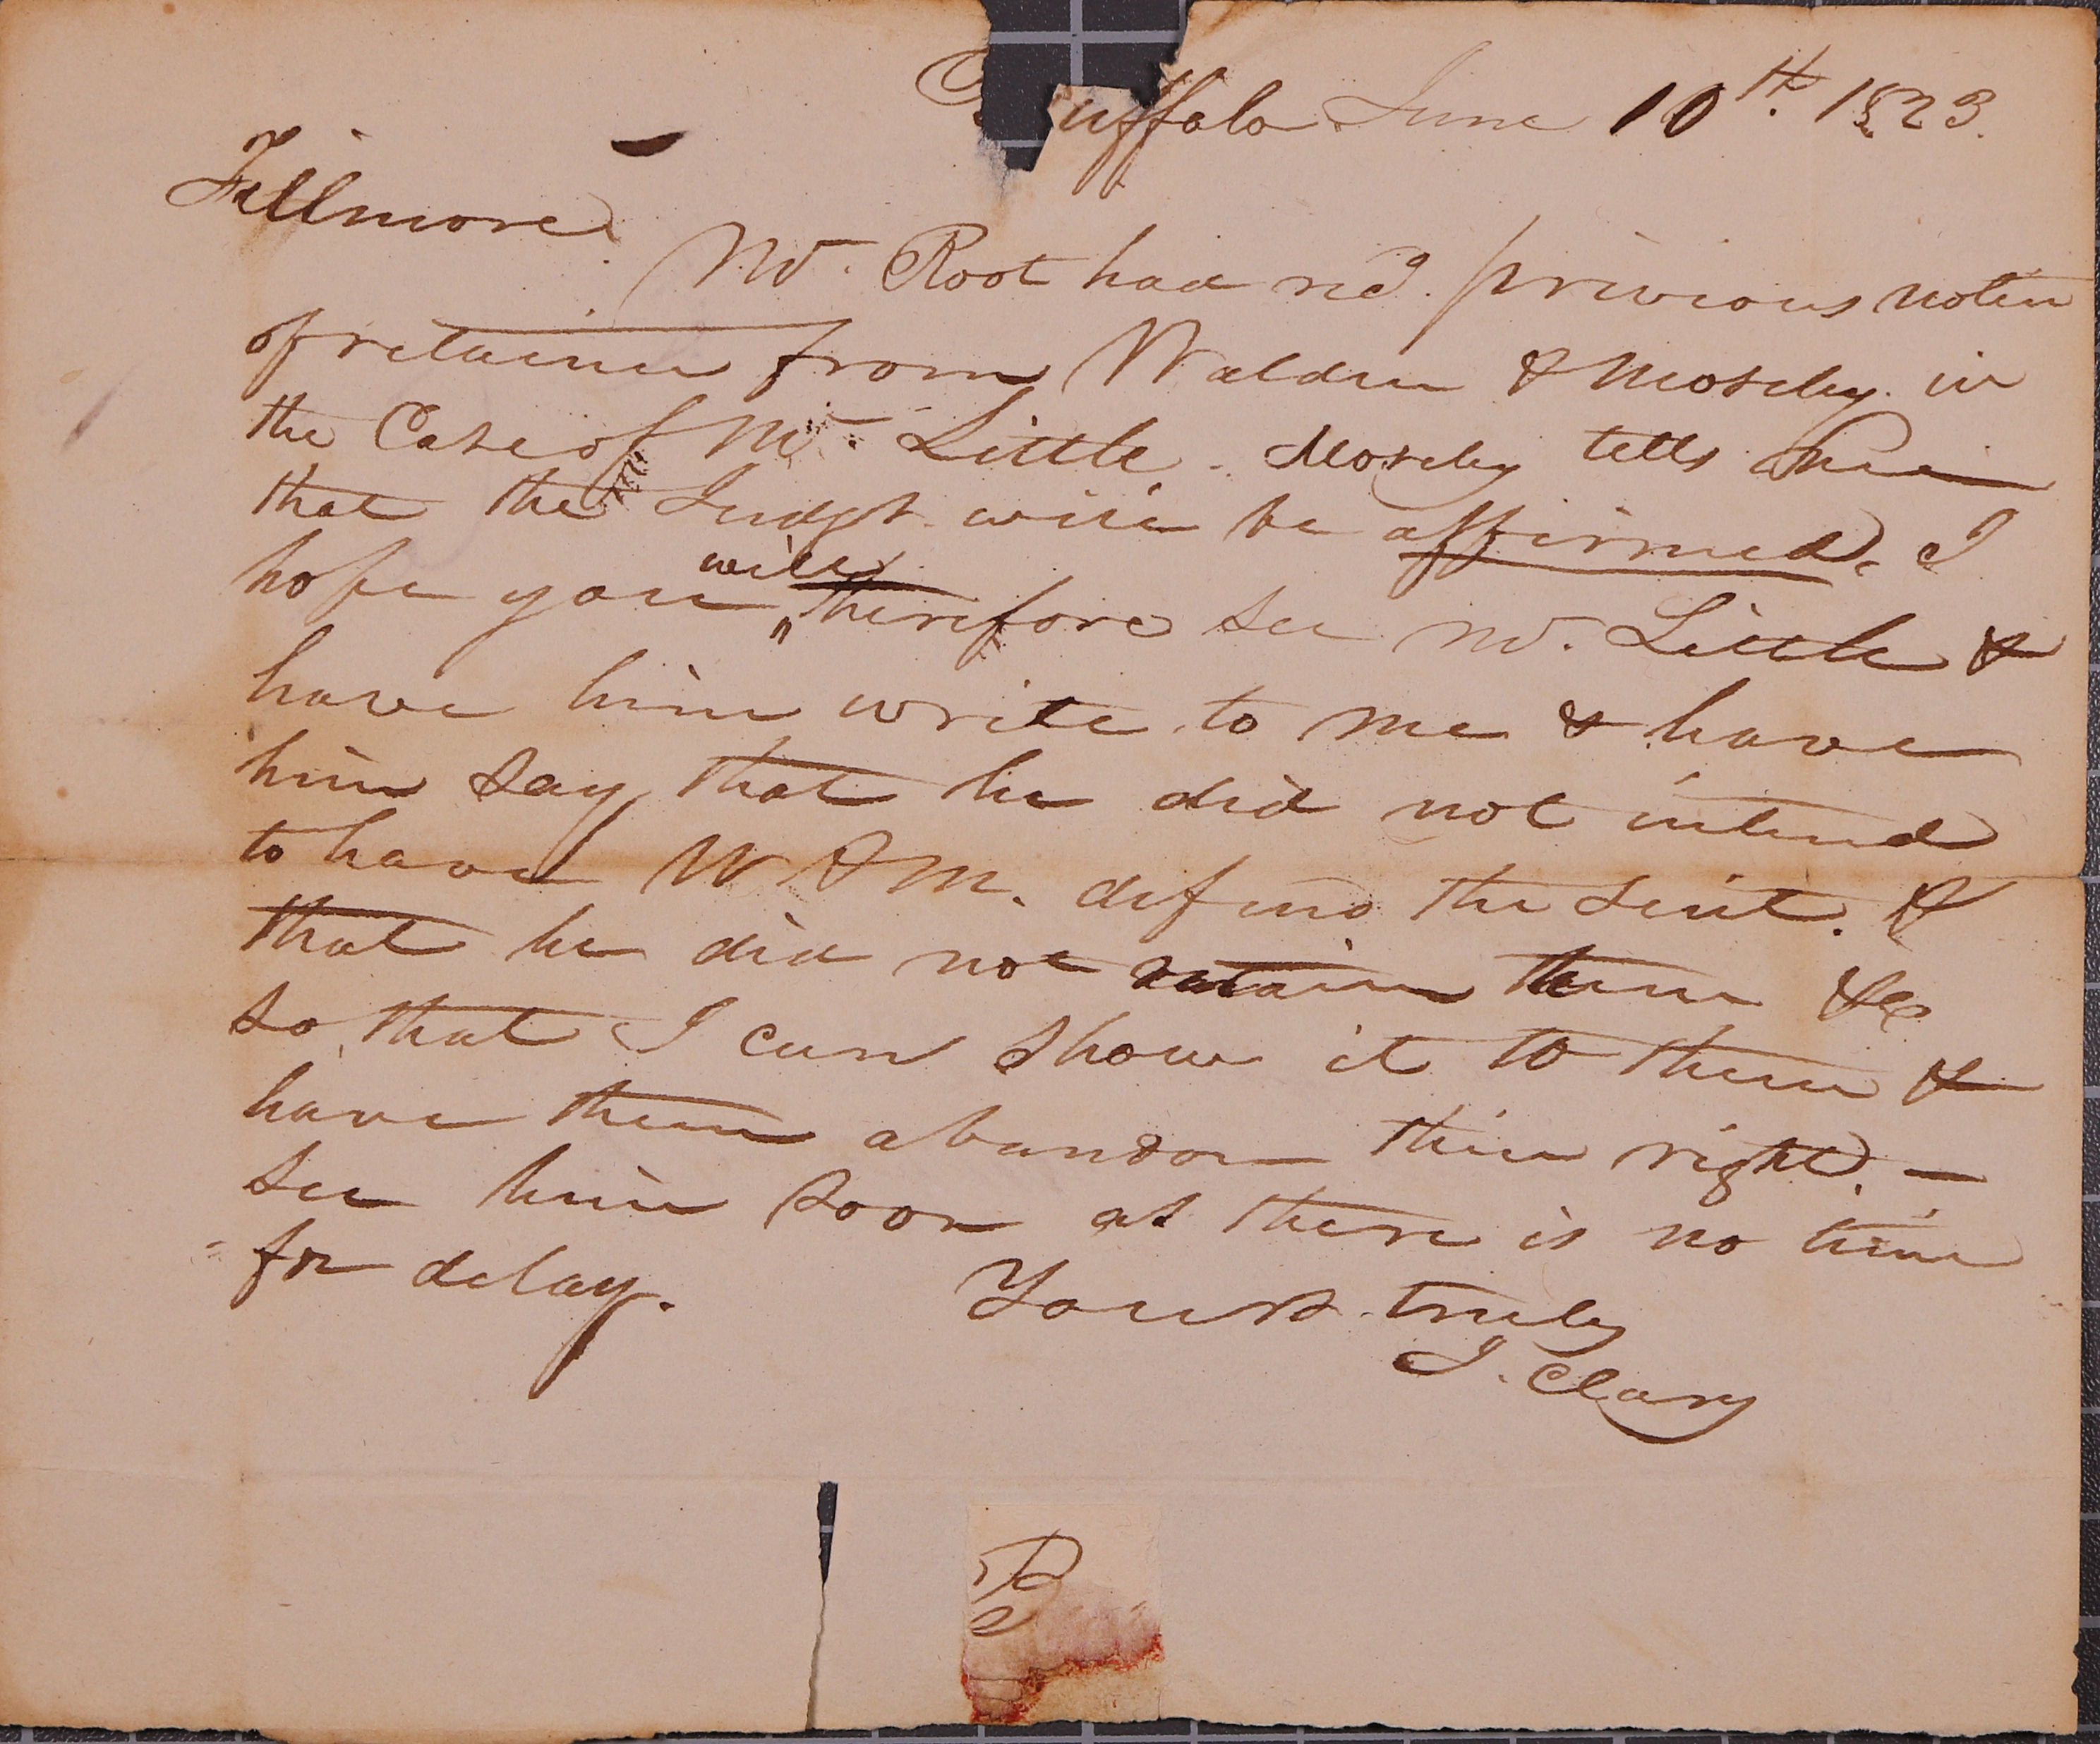 Buffalo June 10th. 1823.
Fillmore.
Mr. Root had recd. privious notice
of retainer from Walden & Moseley in
the Case of Mr. Little. Moseley tells me
that the Judgt. will be affirmed. I
hope you will therefore see Mr. Little &
have him write to me & have
him say that he did not intend
to have W & M. defend the suit. &
that he did not retain them &c
so that I can show it to them &
have them abandon their right. —
see him soon as there is no time
for delay.
Yours truly
J. Clary
B